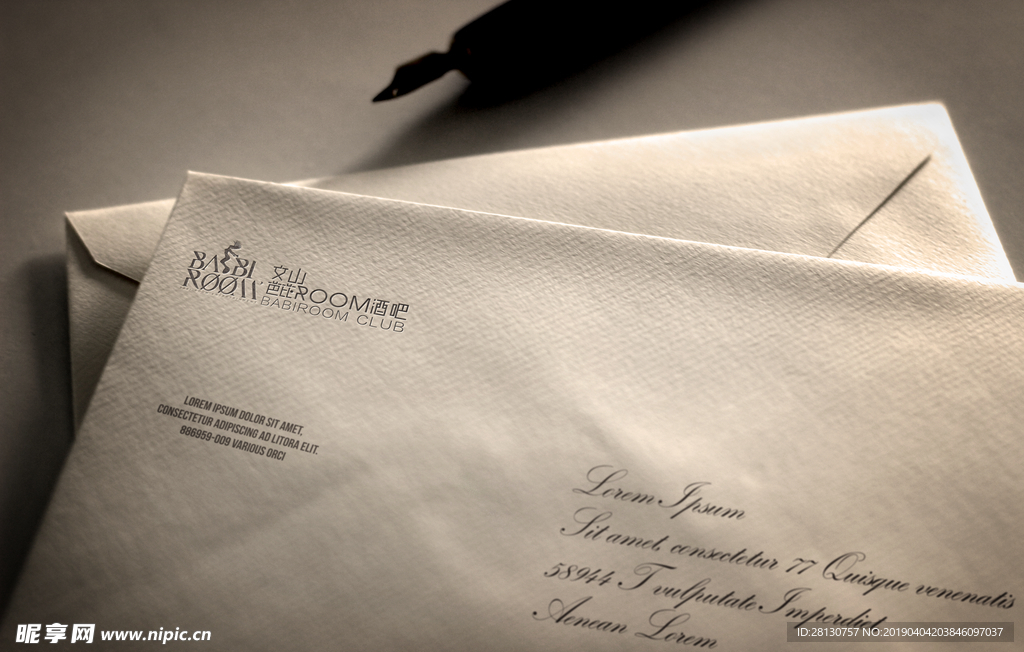 BABI
ROOM
文山
芭芘ROOM酒吧
BABIROOM CLUB
LOREM IPSUM DOLOR SIT AMET,
CONSECTETUR ADIPISCING AD LITORA ELIT.
886959-009 VARIOUS ORCI
Lorem Ipsum
Sit amet, consectetur 77 Quisque venenatis
58944 T vulputate Imperdiet
Aenean Lorem
昵享网 www.nipic.cn
ID:28130757 NO:20190404203846097037